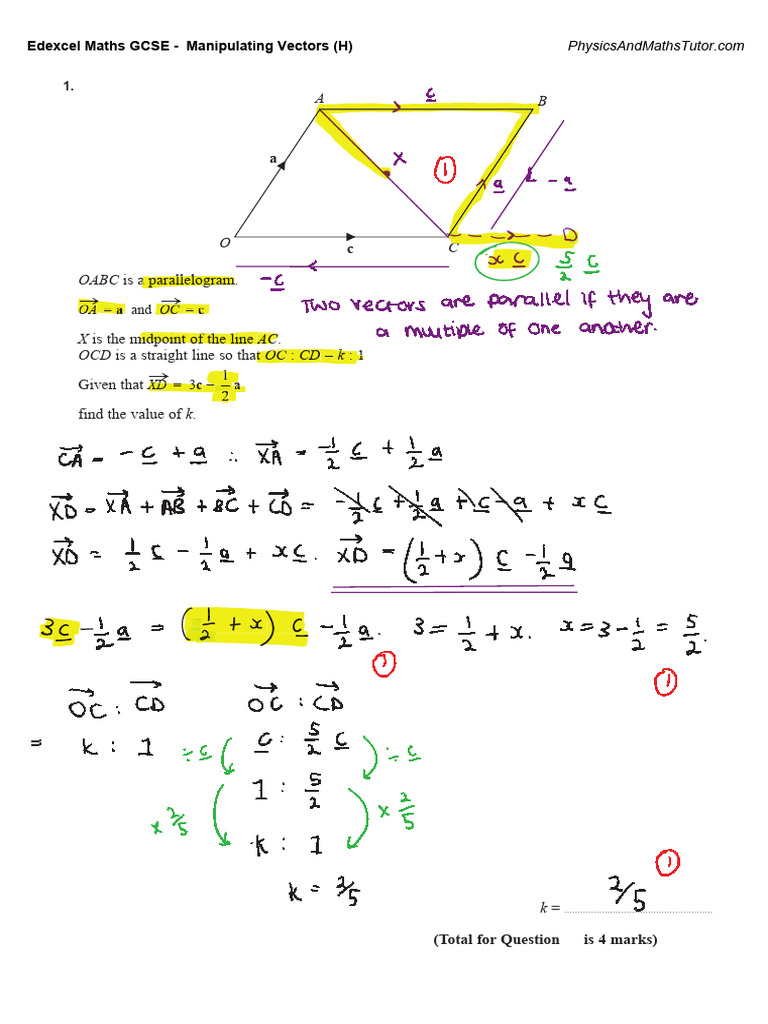 Edexcel Maths GCSE - Manipulating Vectors (H) PhysicsAndMathsTutor.com
1.
A c B
a X 1 a - a
O c C D
x c 5/2 c
- c
OABC is a parallelogram.
OA = a and OC = c
Two vectors are parallel if they are
a multiple of one another.
X is the midpoint of the line AC.
OCD is a straight line so that OC : CD = k : 1
Given that XD = 3c – 1/2 a
find the value of k.
CA = - c + a ∴ XA = -1/2 c + 1/2 a
XD = XA + AB + BC + CD = -1/2 c + 1/2 a + c - a + x c
XD = 1/2 c - 1/2 a + x c. XD = (1/2 + x) c - 1/2 a
3c - 1/2 a = (1/2 + x) c - 1/2 a. 3 = 1/2 + x. x = 3 - 1/2 = 5/2.
1 1
OC : CD OC : CD
= k : 1 ÷ c c : 5/2 c ÷ c
1 : 5/2
x 2/5 x 2/5
k : 1
k = 2/5
1
k = 2/5
(Total for Question is 4 marks)